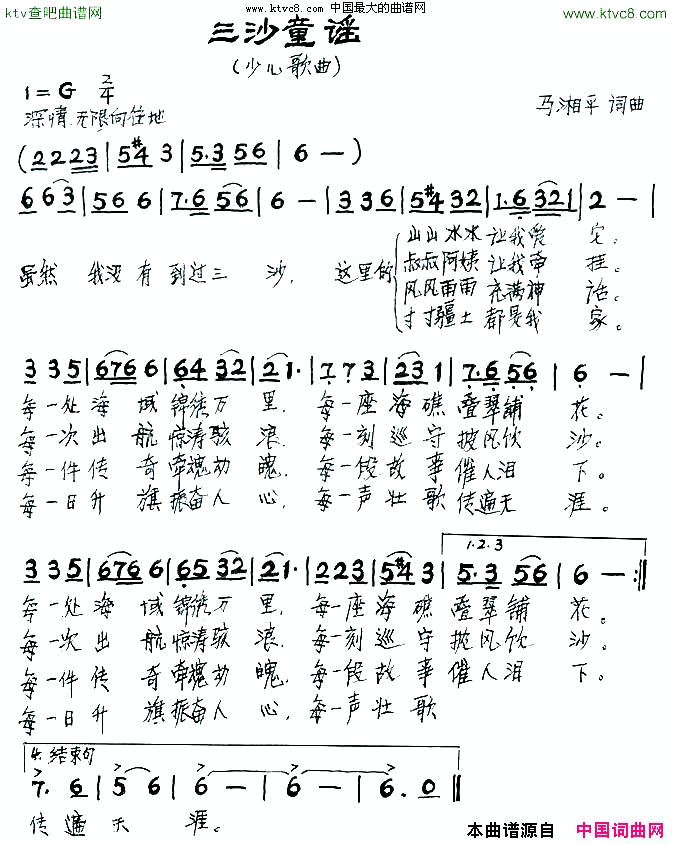 ktv查吧曲谱网
www.ktvc8.com 中国最大的曲谱网
www.ktvc8.com
三沙童谣
(少儿歌曲)
1=G 2/4
深情 无限向往地
马湘平 词曲
(2223|5#43|5·356|6-)|
663|566|7·656|6-|336|5#432|1·6321|2-|
虽然 我没有到过三沙，这里的
山山水水让我爱它。
叔叔阿姨让我牵挂。
风风雨雨充满神话。
寸寸疆土都是我家。
335|6766|6432|21·|773|231|7·656|6-|
每一处海域锦绣万里，每一座海礁叠翠铺花。
每一次出航惊涛骇浪，每一刻巡守披风饮沙。
每一件传奇牵魂动魄，每一段故事催人泪下。
每一日升旗振奋人心，每一声壮歌传遍天涯。
1.2.3
335|6766|6532|21·|223|5#43|5·356|6-:||
每一处海域锦绣万里，每一座海礁叠翠铺花。
每一次出航惊涛骇浪，每一刻巡守披风饮沙。
每一件传奇牵魂动魄，每一段故事催人泪下。
每一日升旗振奋人心，每一声壮歌
4.结束句
7·6|56|6-|6-|6·0||
传遍天涯。
本曲谱源自 中国词曲网